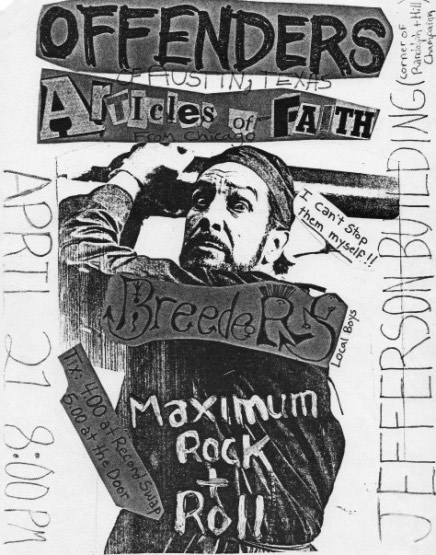 OFFENDERS
OF AUSTIN, TEXAS
ARTiCles of FAITH
From Chicago
(corner of
Randolph + Hill
Champaign)
JEFFERSON BUILDING
APRIL 21 8:00 PM
I can't stop
them myself!!
BreedeRS
Local Boys
Tix 4.00 at Record Swap
5.00 at the Door
Maximum
Rock
+
Roll